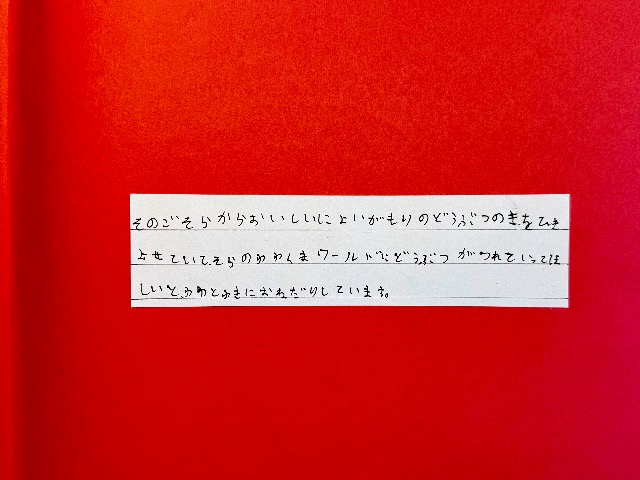 そのごそらからおいしいによいがもりのどうぶつのきをひき
よせていて、そらのわわくまワールドにどうぶつがつれていってほ
しいとゆめとゆきにおねだりしています。